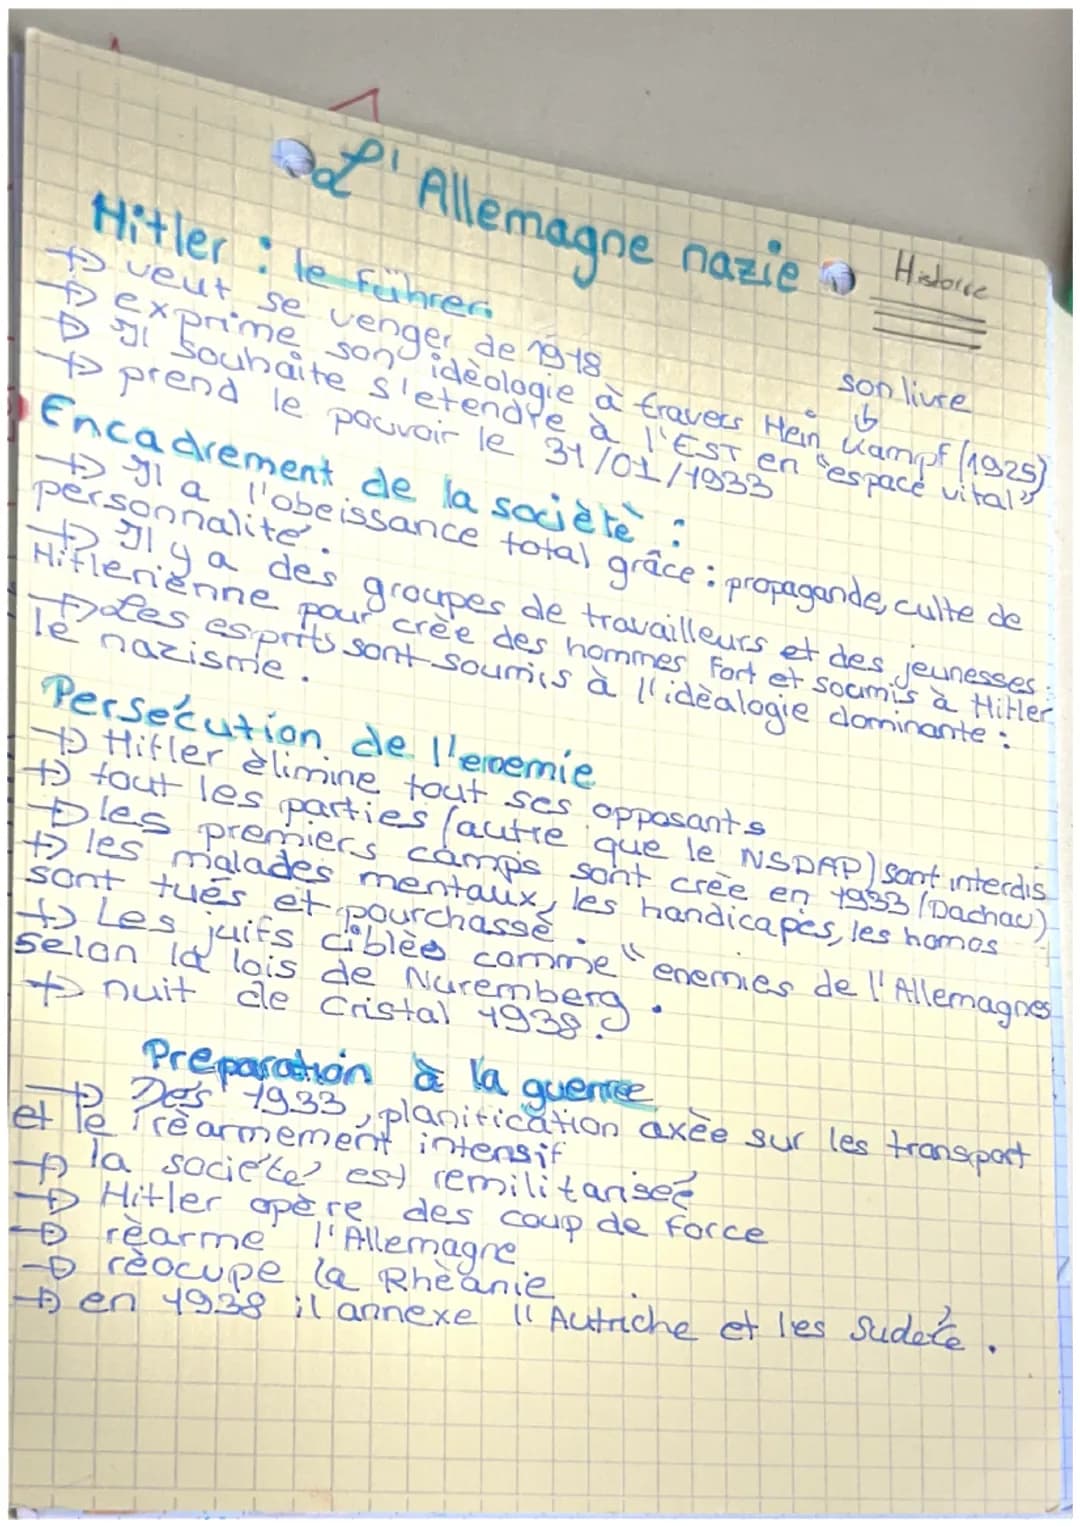 L'Allemagne nazie
Histoire
Hitler : le führer.
→ veut se venger de 1918
→ exprime son idèologie à travers Mein Kampf (1925)
son livre
→ Il souhaite s'etendre à l'EST en "espace vital"
→ prend le pouvoir le 31/01/1933
Encadrement de la socièté :
→ Il a l'obeissance total grâce : propagande, culte de
personnalité.
→ Il y a des groupes de travailleurs et des jeunesses
Hitleriènne pour crèe des hommes fort et soumis à Hitler
→ Les esprits sont soumis à l'idèalogie dominante :
le nazisme.
Persécution de l'enemie
→ Hitler èlimine tout ses opposants
→ tout les parties (autre que le NSDAP) sont interdis
→ les premiers camps sont crèe en 1933 (Dachau)
→ les malades mentaux, les handicapès, les homos
sont tués et pourchassé.
→ Les juifs ciblèe comme "enemies de l'Allemagnes
selon la lois de Nuremberg.
→ nuit de Cristal 1938.
Préparation à la guerre
→ Dés 1933, planification axèe sur les transport
et le rèarmement intensif
→ la société est remilitariseé
→ Hitler opère des coup de force
→ rèarme l'Allemagne
→ rèocupe la Rhèanie
→ en 1938 il annexe l'Autriche et les Sudéte.